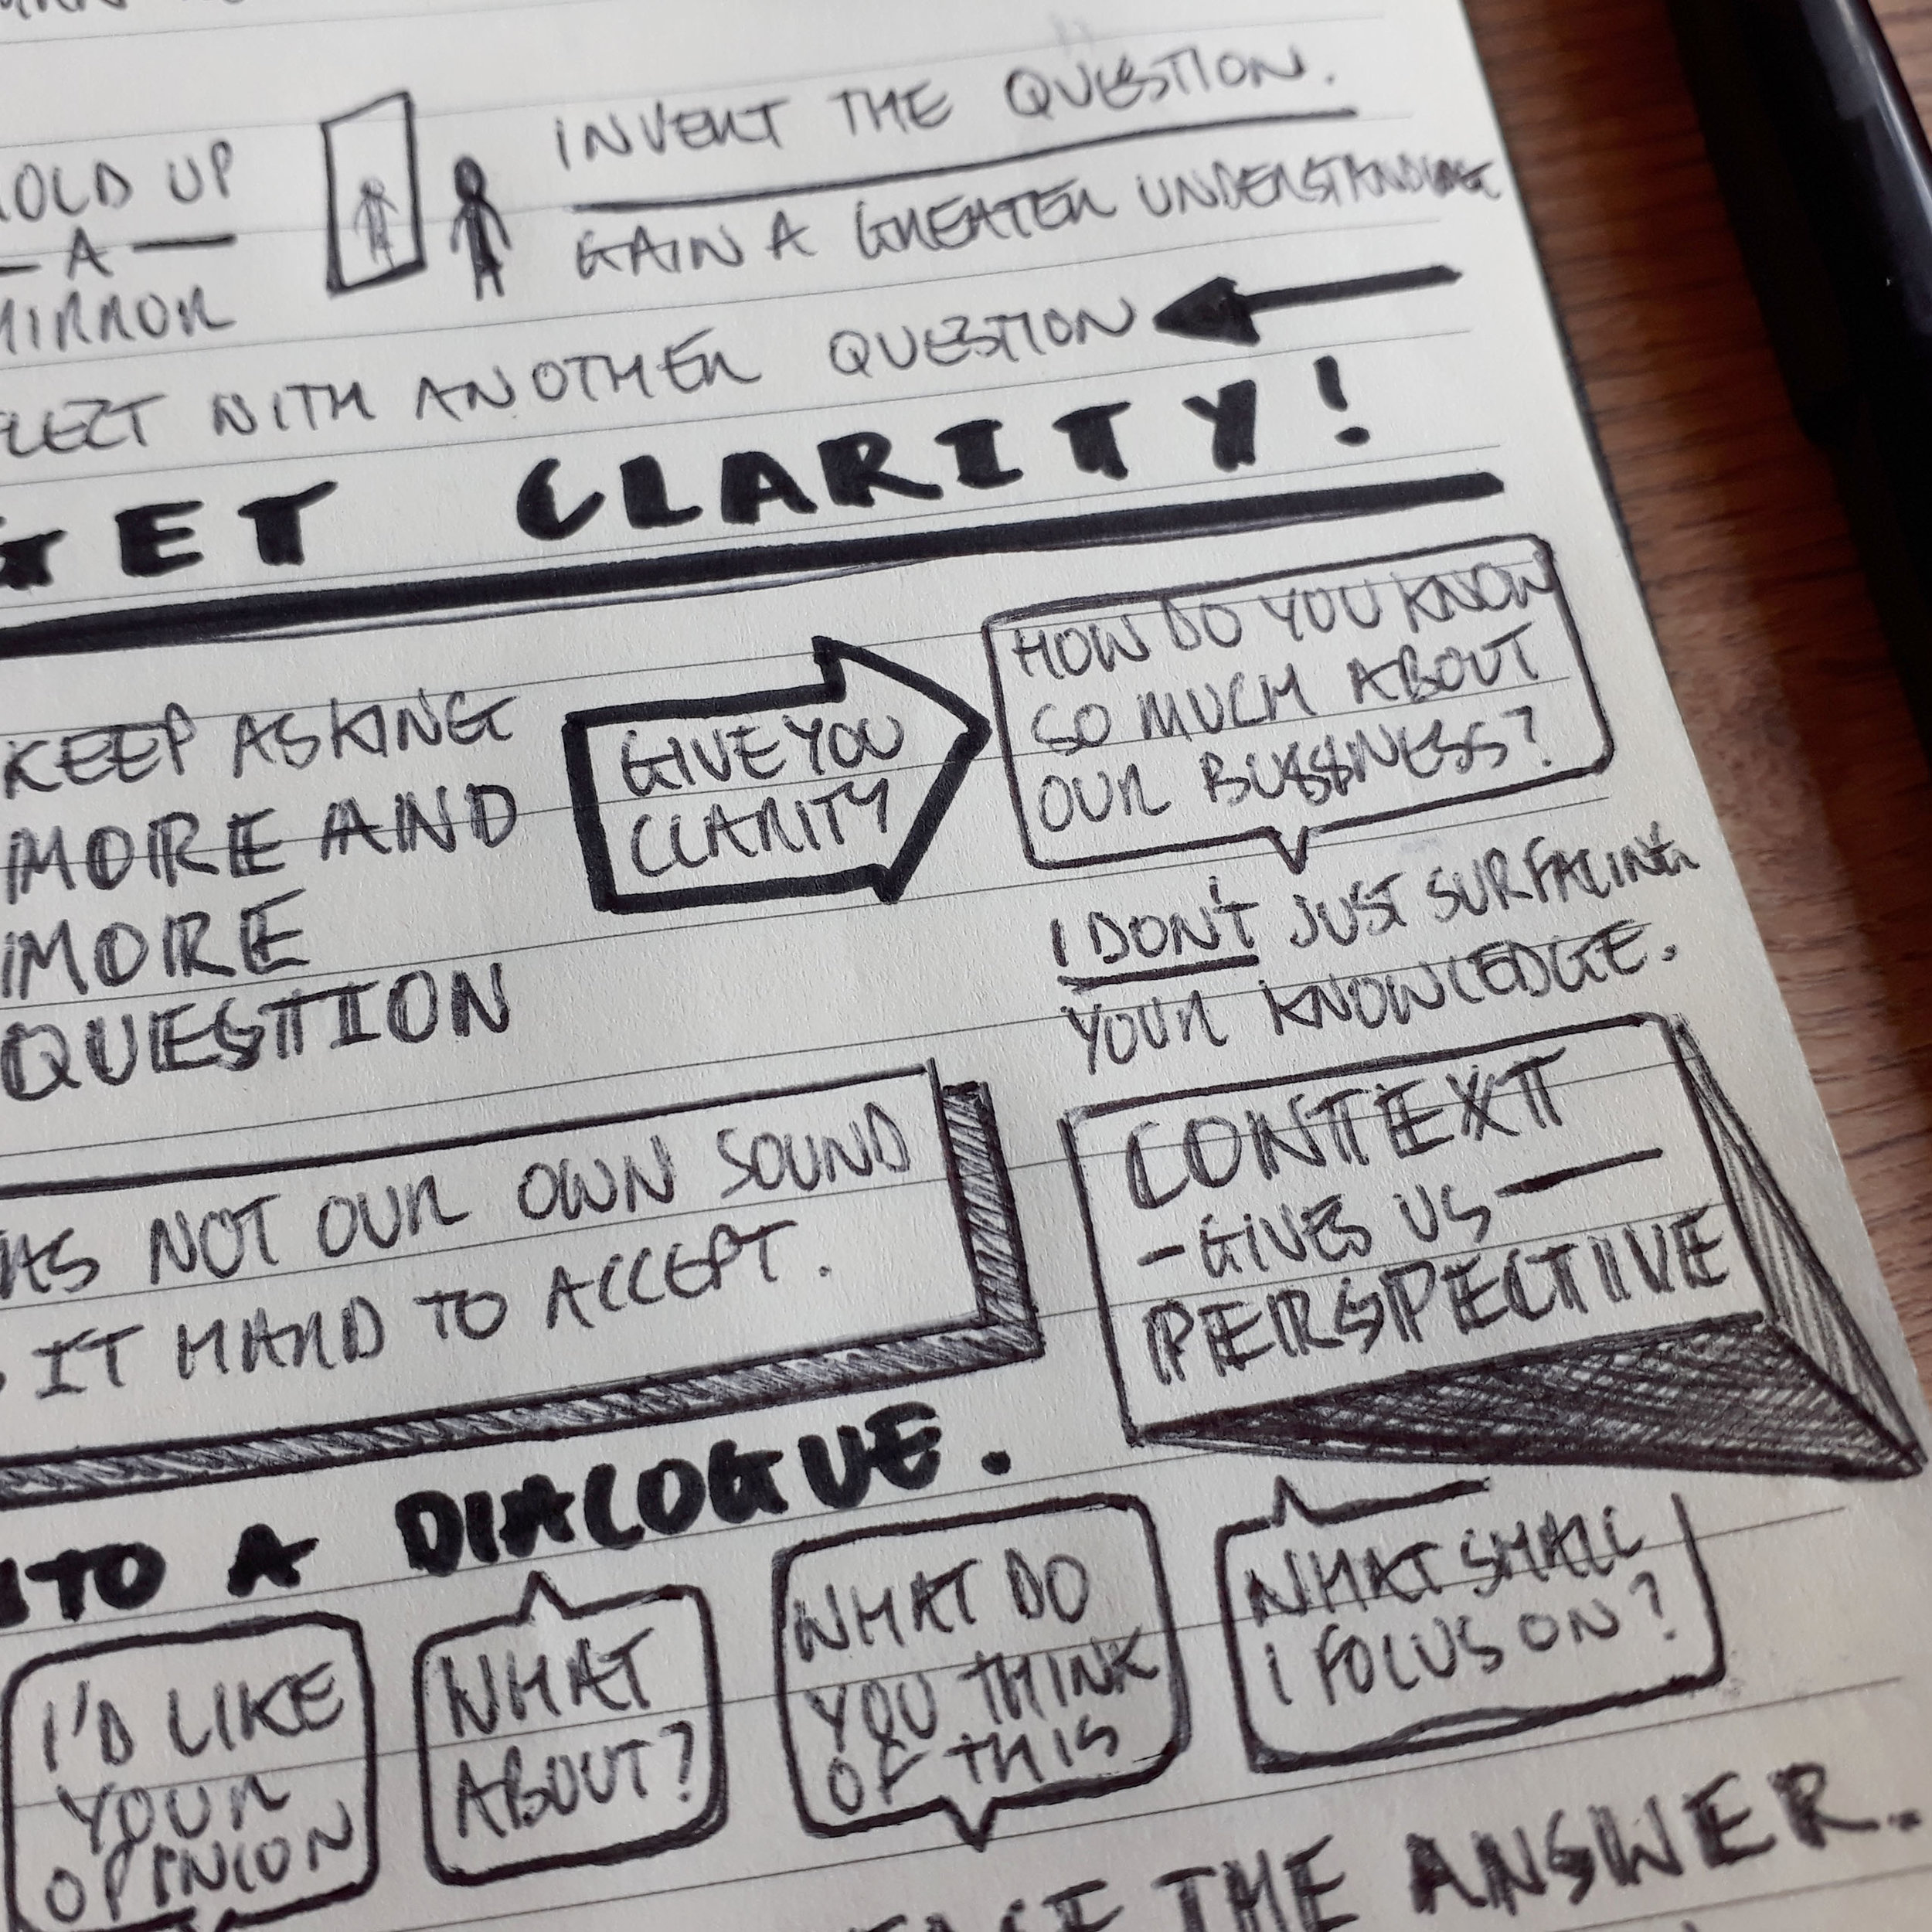 HOLD UP
A
MIRROR
INVERT THE QUESTION.
GAIN A GREATER UNDERSTANDING
FLECT WITH ANOTHER QUESTION
GET CLARITY!
KEEP ASKING
MORE AND
MORE
QUESTION
GIVE YOU
CLARITY
HOW DO YOU KNOW
SO MUCH ABOUT
OUR BUSSINESS?
I DON'T JUST SURFACING
YOUR KNOWLEDGE.
AS NOT OUR OWN SOUND
IT HARD TO ACCEPT.
CONTEXT
-GIVES US-
PERSPECTIVE
NTO A DIALOGUE.
I'D LIKE
YOUR
OPINION
WHAT
ABOUT?
WHAT DO
YOU THINK
OF THIS
WHAT SHALL
I FOCUS ON?
THE ANSWER.